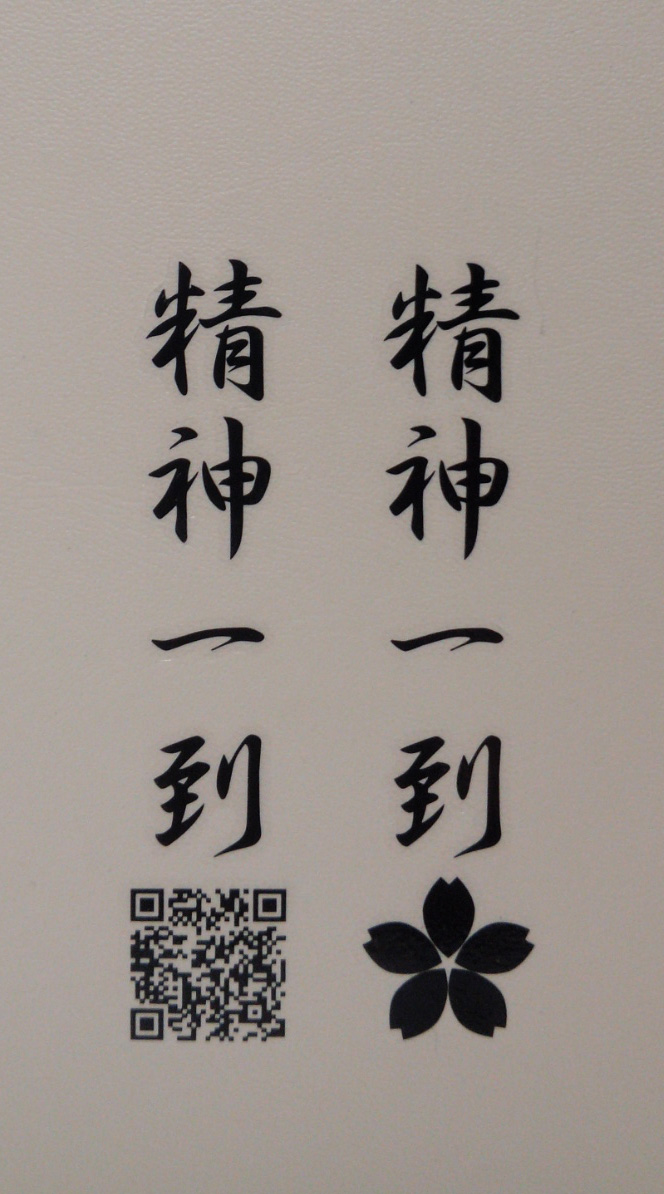 精神一到
精神一到